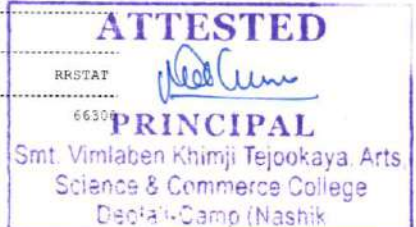 ATTESTED
RRSTAT
PRINCIPAL
Smt. Vimlaben Khimji Tejookaya, Arts,
Science & Commerce College
-Camp (Nashik